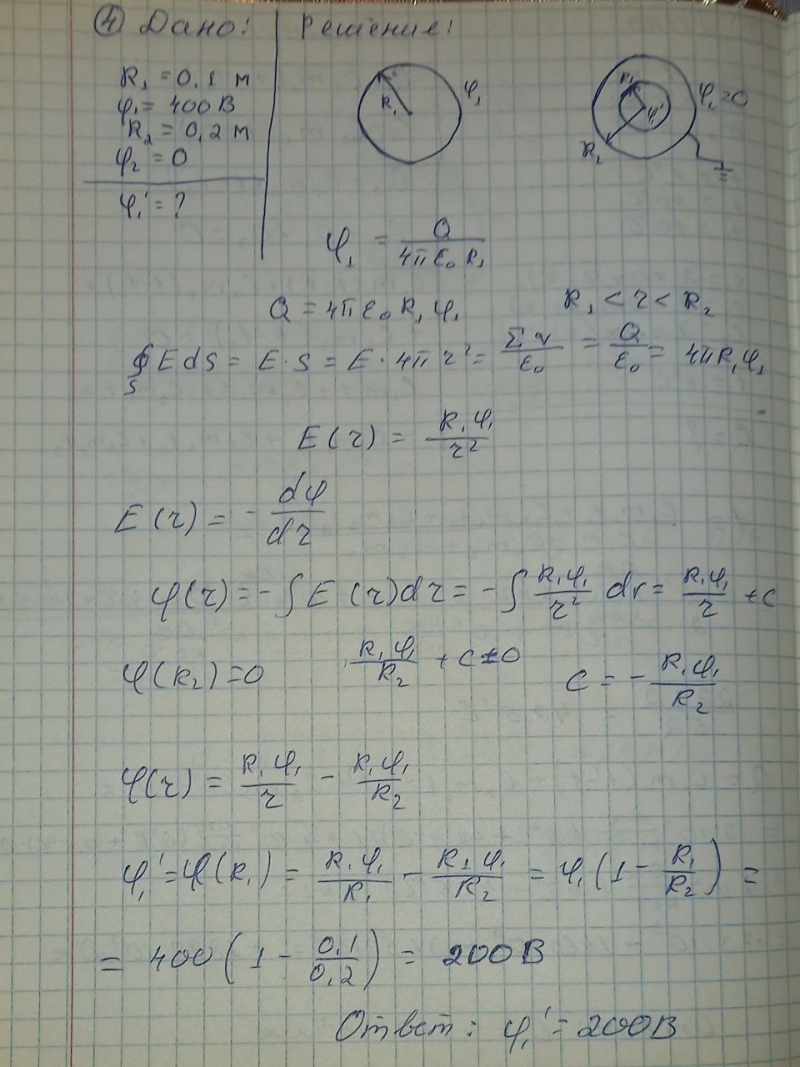 ④ Дано: Решение:
R₁ = 0,1 м
φ₁ = 400 В
R₂ = 0,2 м
φ₂ = 0
φ₁' = ?
R₁ φ₁
R₁ φ₁' φ₂ = 0
R₂
φ₁ = Q / (4πε₀R₁)
Q = 4πε₀R₁φ₁ R₁ < r < R₂
∮_S E dS = E·S = E·4πr² = Σq/ε₀ = Q/ε₀ = 4πR₁φ₁
E(r) = R₁φ₁ / r²
E(r) = - dφ/dr
φ(r) = -∫E(r)dr = -∫ R₁φ₁/r² dr = R₁φ₁/r + c
φ(R₂) = 0 R₁φ₁/R₂ + c = 0 c = - R₁φ₁/R₂
φ(r) = R₁φ₁/r - R₁φ₁/R₂
φ₁' = φ(R₁) = R₁φ₁/R₁ - R₁φ₁/R₂ = φ₁(1 - R₁/R₂) =
= 400(1 - 0,1/0,2) = 200 В
Ответ: φ₁' = 200 В